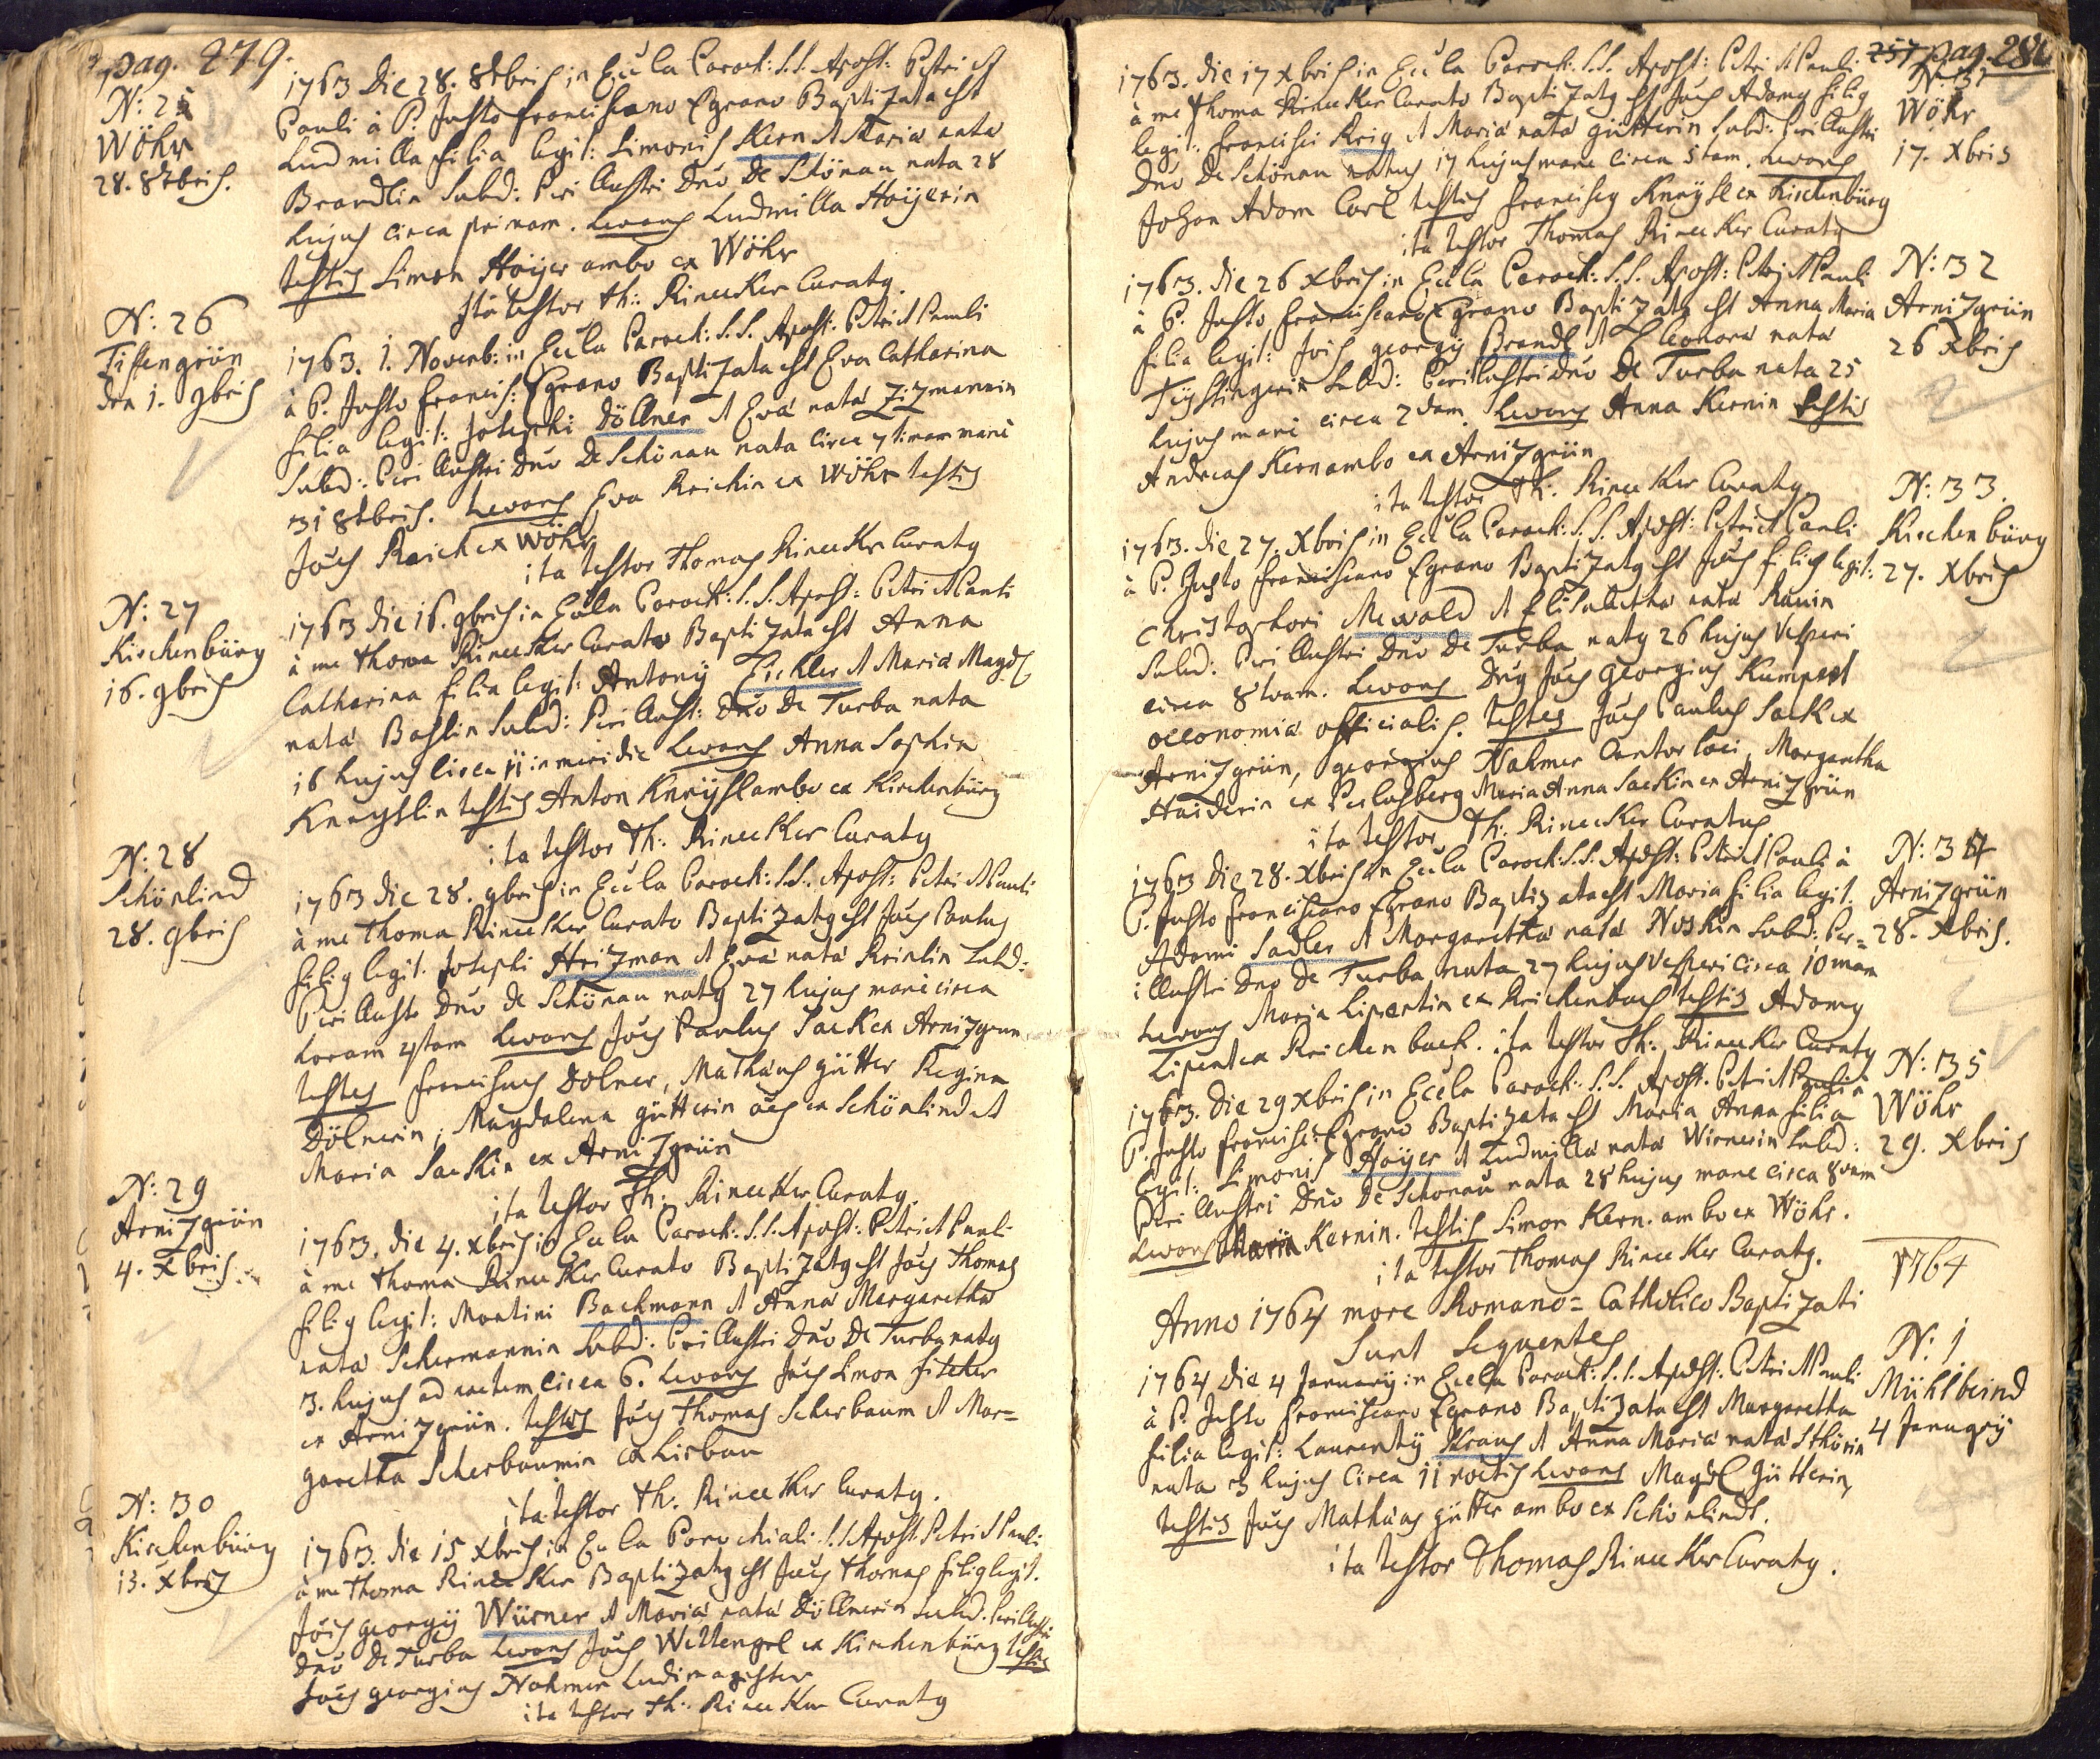 pag. 279.
N: 25
Wöhr
28. 8tbris.
1763 die 28. 8tbris in Eccla Paroch: S.S. Apost: Petri et
Pauli à P: Justo Franciscano Egrano Baptizata est
Ludmilla filia legit: Simonis Kern et Maria nata
Brandlin Subd: Peri Illustri Dno De Schönau nata 28
hujus circa primam. Levans Ludmilla Hoÿerin
testis Simon Hoÿer ambo ex Wöhr
Ita testor Th: Rinecker Curatg.
N: 26
Tissengrün
den 1. 9bris
1763. 1. Novemb: in Eccla Paroch: S.S. Apost: Petri et Pauli
à P. Justo Francis: Egrano Baptizata est Eva Catharina
filia legit: Josephi Döllner et Eva nata Zizmannin
Subd: Peri Illustri Dno De Schönau nata circa 7timam mane
31 8tbris. Levans Eva Reichin ex Wöhr testis
Joes Reich ex Wöhr
ita testor Thomas Rinecker Curatg
N: 27
Kirchenbürg
16. 9bris
1763 die 16. 9bris in Eccla Paroch: S.S. Apost: Petri et Pauli
à me Thoma Rinecker Curato Baptizata est Anna
Catharina filia legit: Antonÿ Eichler et Maria Magdl
nata Bastlin Subd: Peri Illust: Dno De Turba nata
16 hujus circa 11 in meridie Levans Anna Sophia
Kneÿslin testis Anton Kneÿsl ambo ex Kirchenbürg
ita testor Th: Rinecker Curatg
N: 28
Schönlind
28. 9bris
1763 die 28. 9bris in Eccla Paroch: S.S. Apost: Petri et Pauli
à me Thoma Rinecker Curato Baptizatg est Joes Paulus
filig legit. Josephi Heizman et Eva nata Reinlin Subd:
Peri Illustri Dno De Schönau natg 27 hujus mane circa
horam 4tam Levans Joes Paulus Sack ex Arnizgrün
testes Franciscus Dölner, Mathäus Gütter Regina
Dölnerin, Magdalena Gütterin oes ex Schönlind et
Maria Sackin ex Arnizgrün
ita testor Th: Rinecker Curatg.
N: 29
Arnizgrün
4. Xbris
1763. die 4. Xbris in Eccla Paroch: S.S. Apost: Petri et Pauli
à me Thoma Rinecker Curato Baptizatg est Joes Thomas
filig legit: Martini Bachmann et Anna Margaretha
nata Schermannin Subd: Peri Illustri Dno De Turba natg
3. hujus ad noctem circa 6. Levans Joes Simon Fischer
ex Arnizgrün. testes Joes Thomas Scherbaum et Mar=
garetha Scherbaumin ex Lirbau
ita testor Th: Rinecker Curatg.
N: 30
Kirchenbürg
15. Xbris
1763. die 15 Xbris in Eccla Parochiali: S.S. Apost: Petri et Pauli
à me Thoma Rinecker Baptizatg est Joes Thomas filig legit.
Jois Georgÿ Würner et Maria nata Döllnerin Subd. Peri Illustri
Dno De Turba Levans Joes Wettengel ex Kirchenbürg testis
Joes Georgius Nahmer Ludimagister
ita testor Th: Rinecker Curatg
257 pag. 280
N: 31
Wöhr
17. Xbris
1763. die 17 Xbris in Eccla Paroch: S.S. Apost: Petri et Pauli
à me Thoma Rinecker Curato Baptizatg est Joes Adamg filig
legit: Francisci Krig et Maria nata Gütterin Subd: Peri Illustri
Dno De Schönau natus 17 hujus mane circa 5tam. Levans
Johan Adam Carl testis Franciscg Kneÿsl ex Kirchenbürg
ita testor Thomas Rinecker Curatg
N: 32
Arnizgrün
26 Xbris
1763. die 26 Xbris in Eccla Paroch: S.S. Apost: Petri et Pauli
à P. Justo Franciscano Egrano Baptizatg est Anna Maria
filia legit: Jois Georgÿ Brandl et Eleonora nata
Teÿstingerin Subd: Peri Illustri Dno De Turba nata 25
hujus mane circa 2dam. Levans Anna Kernin testis
Andreas Kern ambo ex Arnizgrün
ita testor Th: Rinecker Curatg
N: 33.
Kirchenbürg
27. Xbris
1763. die 27. Xbris in Eccla Paroch: S.S. Apost: Petri et Pauli
à P. Justo Franciscano Egrano Baptizatg est Joes filig legit:
Christophori Mewald et Elisabetha nata Rauin
Subd: Peri Illustri Dno De Turba natg 26 hujus Vesperi
circa 8tvam. Levans Dng Joes Georgius Kumpert
oeconomiae officialis. testes Joes Paulus Sack ex
Arnizgrün, Georgius Nahmer Cantor loci, Margaretha
Haiderin ex Perlasberg Maria Anna Sackin ex Arnizgrün
ita testor Th: Rinecker Curatus
N: 34
Arnizgrün
28. Xbris.
1763 die 28. Xbris in Eccla Paroch: S.S. Apost: Petri et Pauli à
P. Justo Franciscano Egrano Baptizata est Maria filia legit.
Adami Sadler et Margaretha nata Noskin Subd: Per=
illustri Dno De Turba nata 27 hujus Vesperi circa 10mam
Levans Maria Lipertin ex Reichenbach testis Adamg
Lipert ex Reichenbach. ita testor Th: Rinecker Curatg
N: 35
Wöhr
29. Xbris
1763. die 29 Xbris in Eccla Paroch: S.S. Apost: Petri et Pauli à
P. Justo Francisc: Egrano Baptizata est Maria Anna filia
legit: Simonis Hoÿer et Ludmilla nata Wirnerin Subd:
Peri Illustri Dno De Schönau nata 28 hujus mane circa 8vam
Levans Maria Kernin. testis Simon Kern. ambo ex Wöhr.
ita testor Thomas Rinecker Curatg.
1764
Anno 1764 more Romano=Catholico Baptizati
Sunt Sequentes
N: 1
Mühlbeind
4 Januarÿ
1764 die 4 Januarÿ in Eccla Paroch: S.S. Apost: Petri et Pauli
à P. Justo Franciscano Egrano Baptizata est Margaretha
filia legit: Laurentÿ Kraus et Anna Maria nata Sthörin
nata 3 hujus circa 11 noctis Levans Magdl Gütterin,
testis Joes Mathäus Gütter ambo ex Schönlindt.
ita testor Thomas Rinecker Curatg.